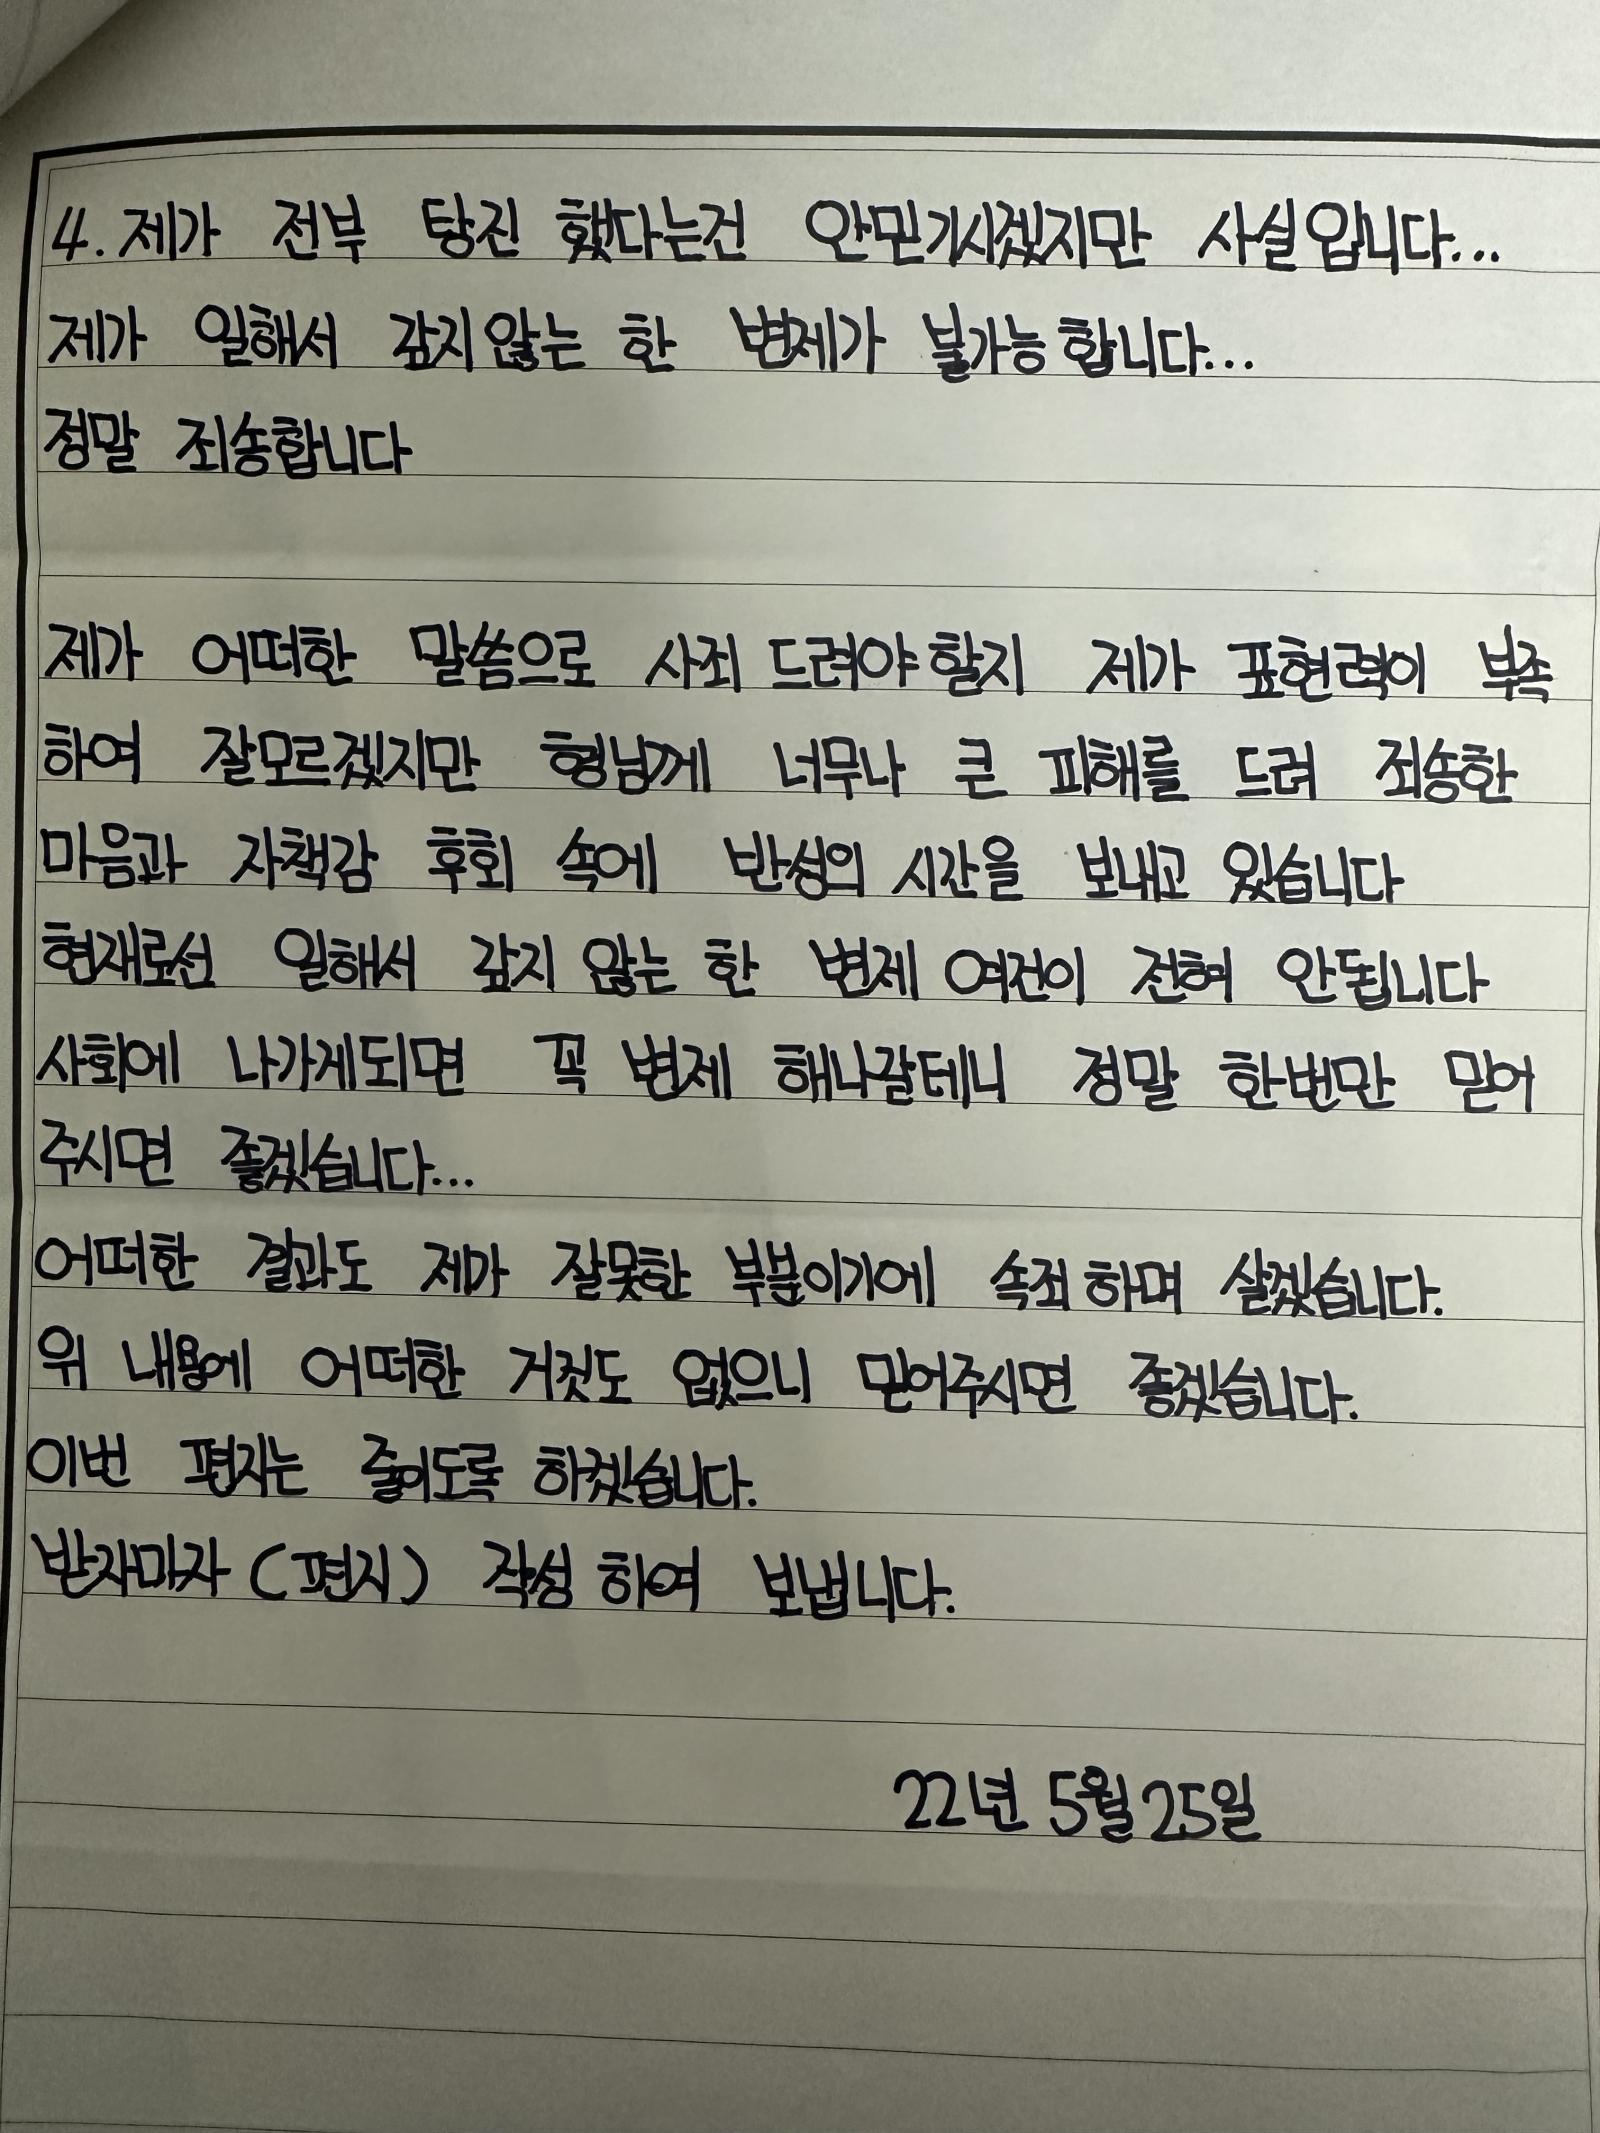 4. 제가 전부 탕진 했다는건 안믿기시겠지만 사실입니다...
제가 일해서 갚지않는 한 변제가 불가능 합니다...
정말 죄송합니다
제가 어떠한 말씀으로 사죄 드려야할지 제가 표현력이 부족
하여 잘모르겠지만 형님께 너무나 큰 피해를 드려 죄송한
마음과 자책감 후회 속에 반성의 시간을 보내고 있습니다
현재로선 일해서 갚지 않는 한 변제 여건이 전혀 안됩니다
사회에 나가게되면 꼭 변제 해나갈테니 정말 한번만 믿어
주시면 좋겠습니다...
어떠한 결과도 제가 잘못한 부분이기에 속죄 하며 살겠습니다.
위 내용에 어떠한 거짓도 없으니 믿어주시면 좋겠습니다.
이번 편지는 줄이도록 하겠습니다.
받자마자 (편지) 작성 하여 보냅니다.
22년 5월 25일